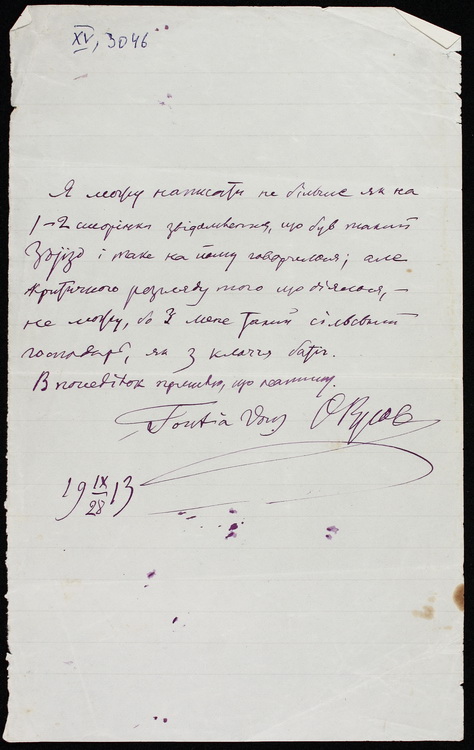 XV, 3046
Я можу написати не більше як на
1–2 сторінки звідомлення, що був такий
З'їзд і таке на йому говорилося; але
критичного розгляду того що діялося, –
не можу, бо з мене такий сільський
господарь, як з клоччя батіг.
В понеділок пришлю, що напишу.
ОРусов
19 IX/28 13